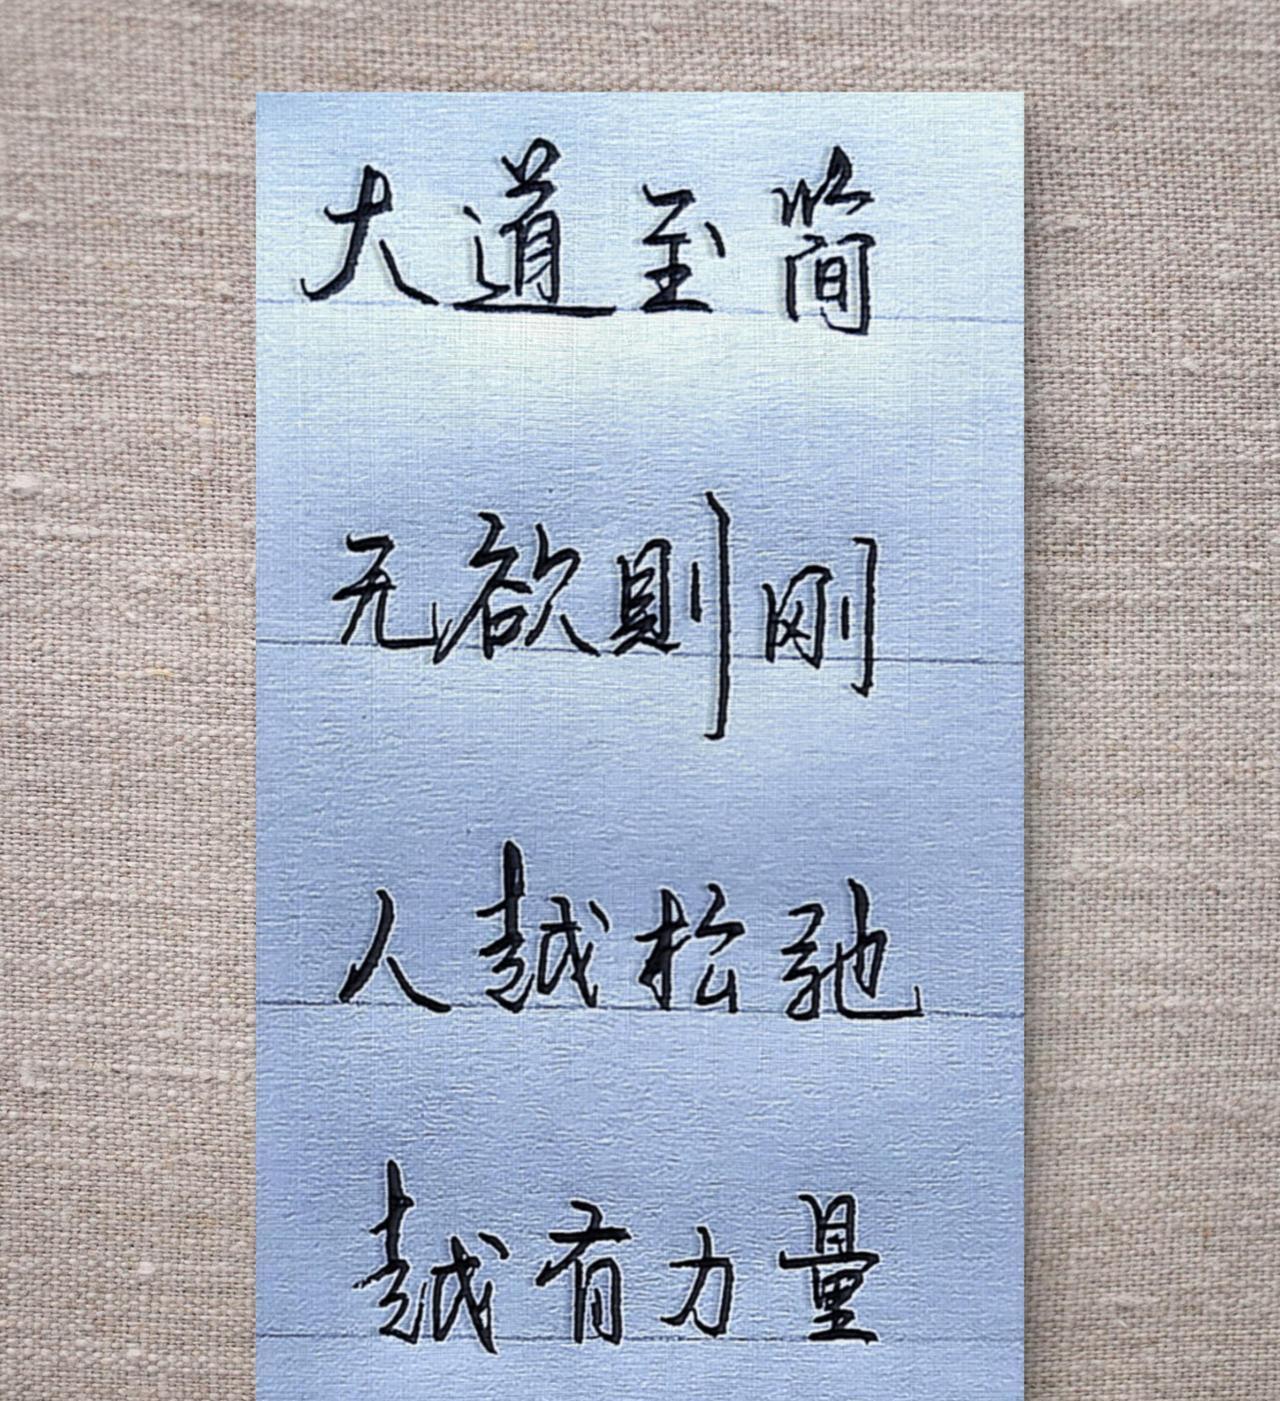 大道至简
无欲则刚
人越松弛
越有力量